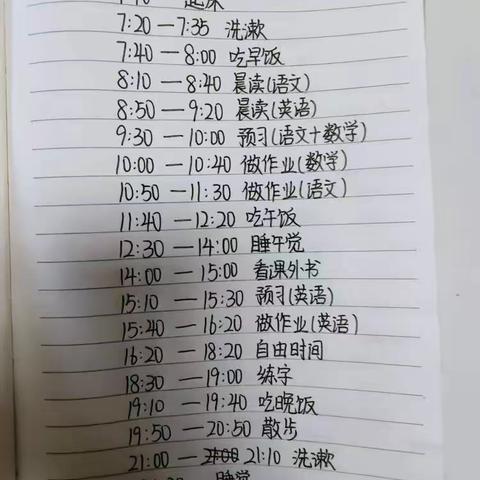 起床
7:20 — 7:35 洗漱
7:40 — 8:00 吃早饭
8:10 — 8:40 晨读(语文)
8:50 — 9:20 晨读(英语)
9:30 — 10:00 预习(语文+数学)
10:00 — 10:40 做作业(数学)
10:50 — 11:30 做作业(语文)
11:40 — 12:20 吃午饭
12:30 — 14:00 睡午觉
14:00 — 15:00 看课外书
15:10 — 15:30 预习(英语)
15:40 — 16:20 做作业(英语)
16:20 — 18:20 自由时间
18:30 — 19:00 练字
19:10 — 19:40 吃晚饭
19:50 — 20:50 散步
21:00 — 21:10 洗漱
睡觉